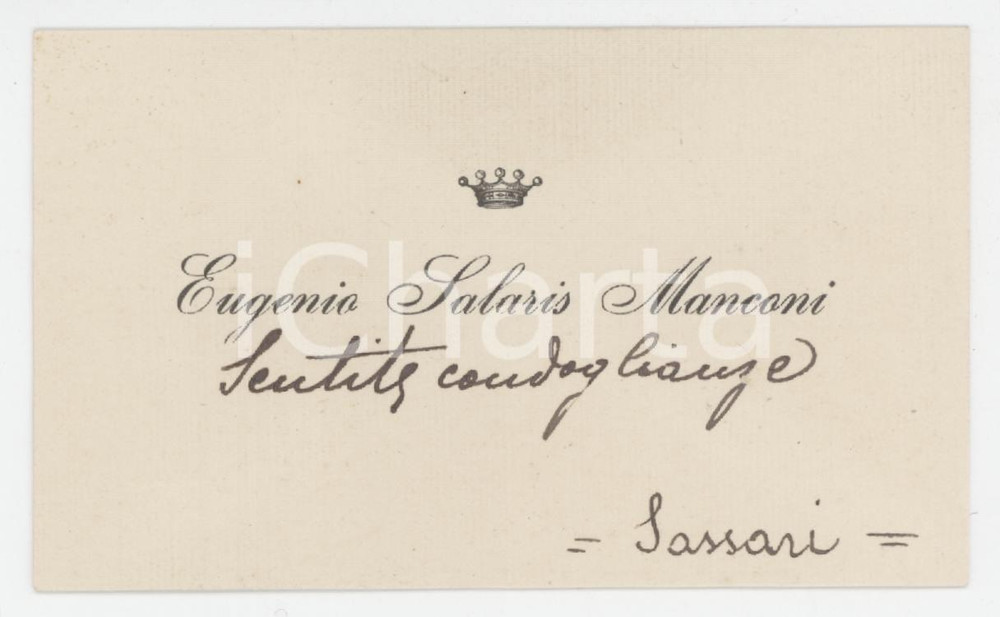 Eugenio Salaris Manconi
iCharta
Sentite condoglianze
= Sassari =